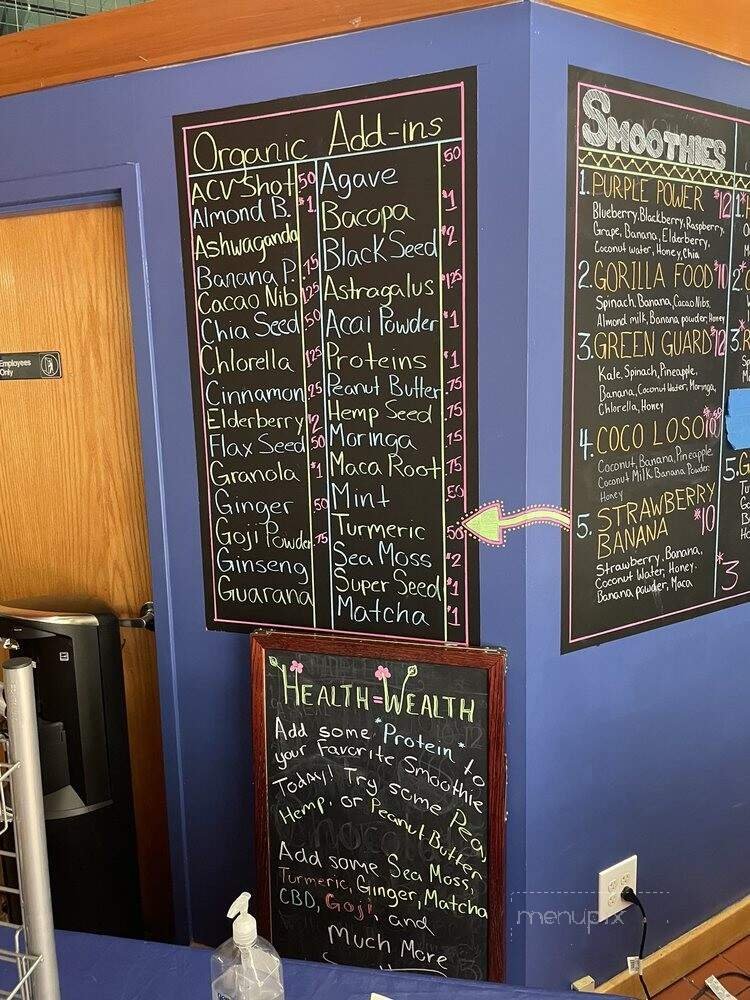 Employees
Only
Organic Add-ins
ACV Shot 50
Almond B. $1
Ashwaganda
Banana P. .75
Cacao Nib 125
Chia Seed .50
Chlorella 125
Cinnamon .25
Elderberry $2
Flax Seed 50
Granola $1
Ginger 50
Goji Powder .75
Ginseng
Guarana
Agave 50
Bacopa $1
Black Seed $2
Astragalus $125
Acai Powder $1
Proteins $1
Peanut Butter .75
Hemp Seed .75
Moringa .75
Maca Root .75
Mint .50
Turmeric 50
Sea Moss $2
Super Seed $1
Matcha $1
SMOOTHIES
1. PURPLE POWER $12
Blueberry, Blackberry, Raspberry,
Grape, Banana, Elderberry,
Coconut water, Honey, Chia
2. GORILLA FOOD $10
Spinach, Banana, Cacao Nibs,
Almond milk, Banana powder, Honey
3. GREEN GUARD $12
Kale, Spinach, Pineapple,
Banana, Coconut Water, Moringa,
Chlorella, Honey
4. COCO LOSO
Coconut, Banana, Pineapple
Coconut Milk, Banana Powder,
Honey
5. STRAWBERRY
BANANA $10
Strawberry, Banana,
Coconut Water, Honey,
Banana powder, Maca
HEALTH=WEALTH
Add some *Protein* to
your Favorite Smoothie
Today! Try some Pea,
Hemp, or Peanut Butter
Add some Sea Moss,
Turmeric, Ginger, Matcha
CBD, Goji, and
Much More
menupix